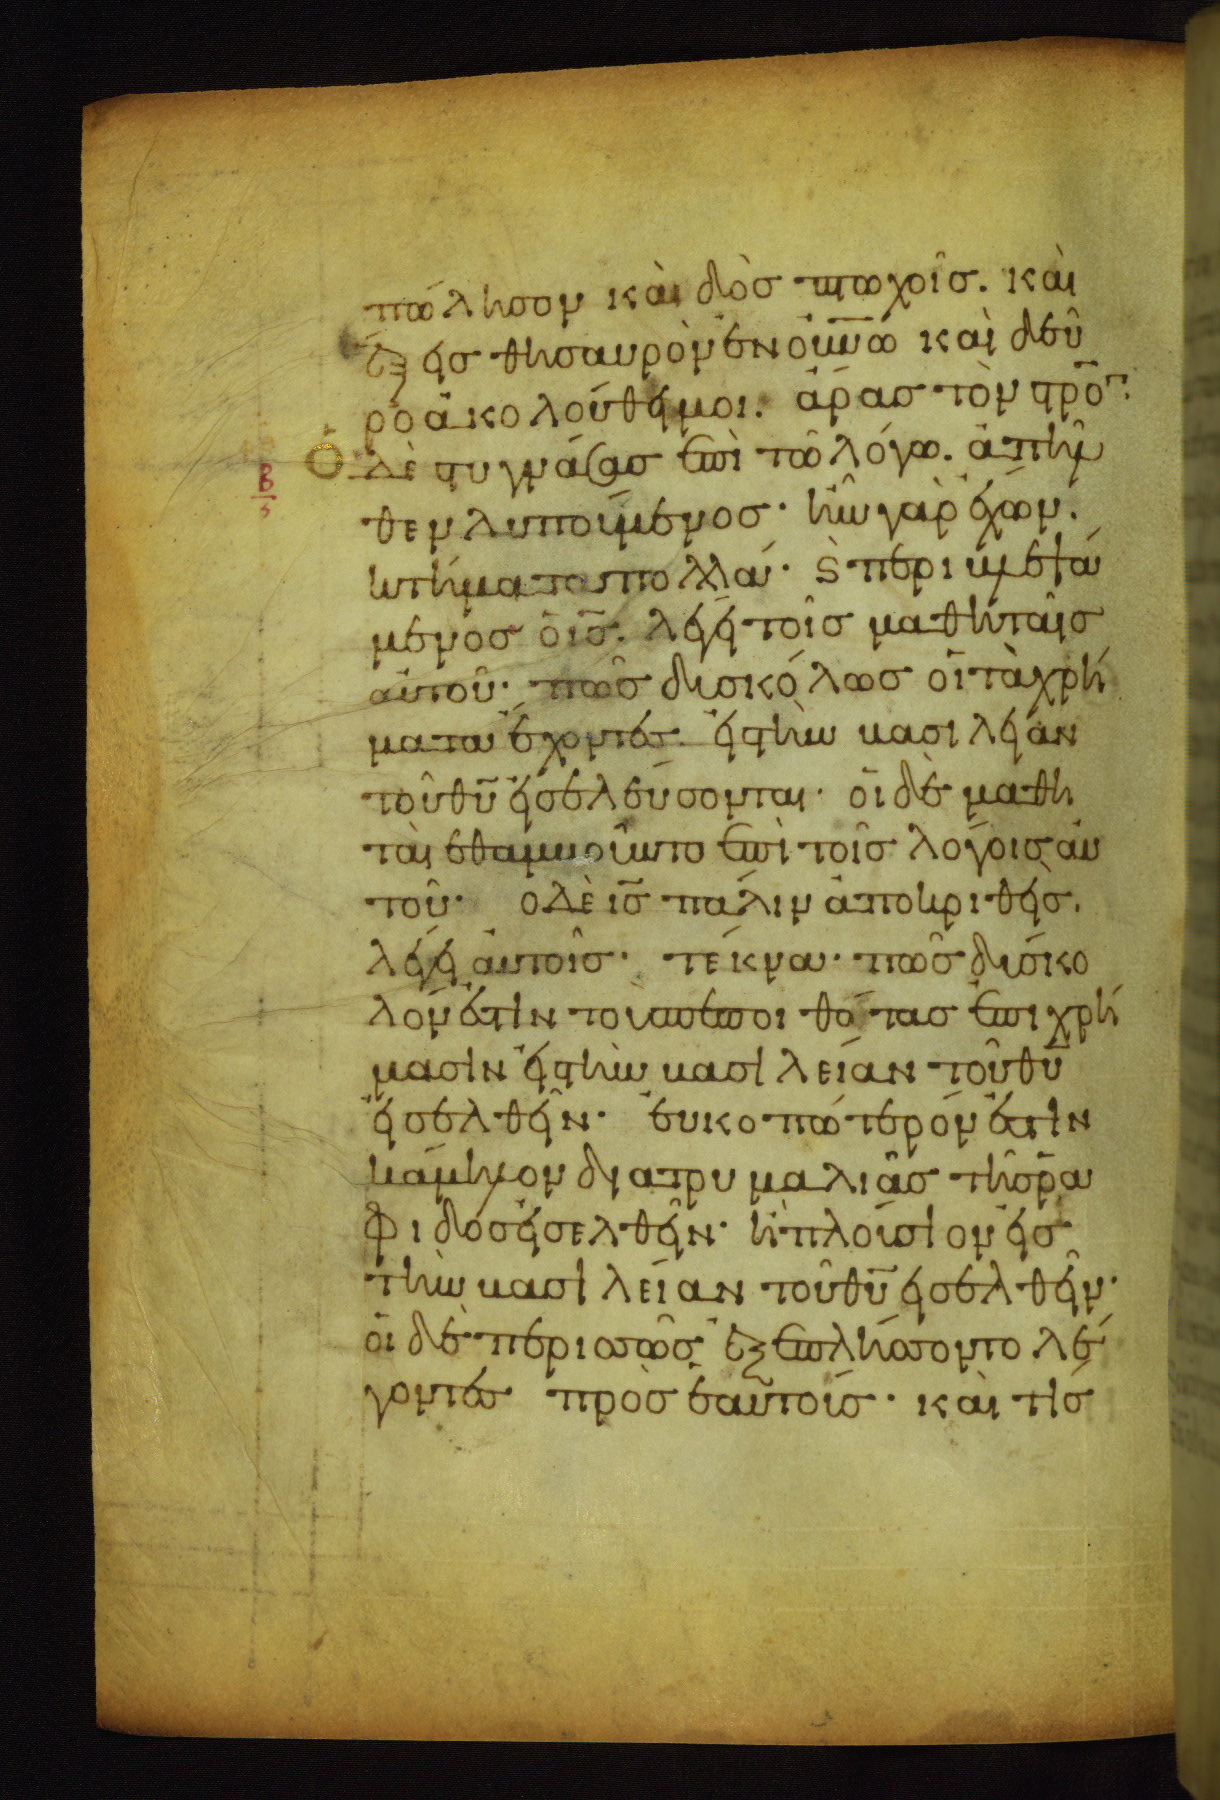 πώλησον καὶ δὸς πτωχοῖς. καὶ
ἕξεις θησαυρὸν ἐν οὐ̅ν̅ω̅ καὶ δεῦ
ρο ἀκολούθει μοι. ἄρας τὸν σ̅τ̅ρ̅ο̅ν̅.
Ὁ δὲ στυγνάσας ἐπὶ τῶ λόγω. ἀπῆλ
Β
ϛ
θεν λυπούμενος· ἦν γὰρ ἔχων.
κτήματα πολλά· ϗ̀ περιβλεψά
μενος ὁ ι̅ς̅. λέγει τοῖς μαθηταῖς
αὐτοῦ· πῶς δυσκόλως οἱ τὰ χρή
ματα ἔχοντες. εἰς τὴν βασιλείαν
τοῦ θ̅υ̅ εἰσελεύσονται· οἱ δὲ μαθη
ταὶ ἐθαμβοῦντο ἐπὶ τοῖς λόγοις αὐ
τοῦ· ὁ δὲ ι̅ς̅ πάλιν ἀποκριθεὶς.
λέγει αὐτοῖς· τέκνα· πῶς δύσκο
λόν ἐστιν τοὺς πεποιθότας ἐπι χρή
μασιν εἰς τὴν βασιλείαν τοῦ θ̅υ̅
εἰσελθεῖν· εὐκοπώτερόν ἐστιν
κάμηλον δια τρυμαλιᾶς τῆς ῥα
φίδος εἰσελθεῖν· ἢ πλούσιον εἰς
τὴν βασιλείαν τοῦ θ̅υ̅ εἰσελθεῖν·
οἱ δὲ περισσῶς ἐξεπλήσσοντο λέ
γοντες πρὸς ἑαυτούς· καὶ τίς